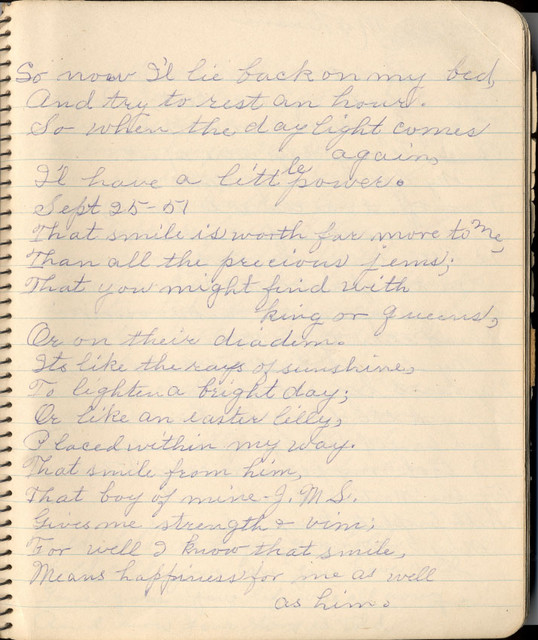 So now I'l lie back on my bed,
And try to rest an hour.
So when the daylight comes
again,
I'l have a little power.
Sept 25-51
That smile is worth far more to me,
Than all the precious jems;
That you might find with
king or queens,
Or on their diadem.
Its like the rays of sunshine,
To lighten a bright day;
Or like an easter lilly,
Placed within my way.
That smile from him,
That boy of mine - J. M. S.
Gives me strength & vim;
For well I know that smile,
Means happiness for me as well
as him.